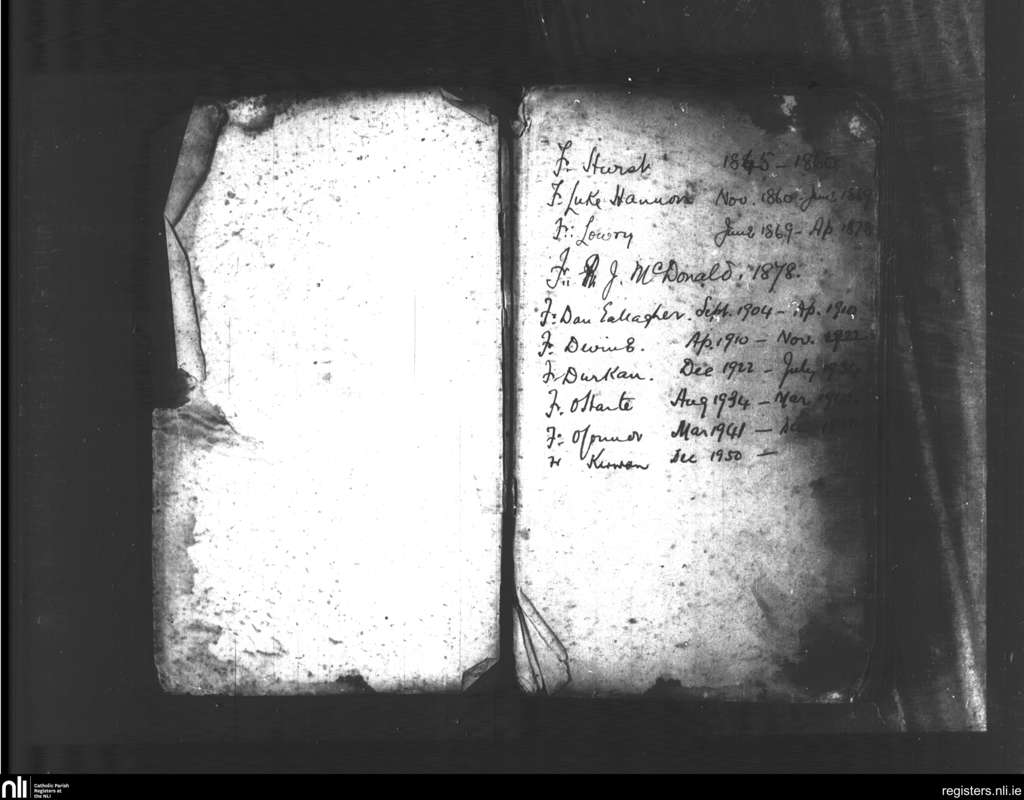 Fr. Hurst 1845 - 1860
Fr. Luke Hannon Nov. 1860 - June 1869
Fr. Lowry June 1869 - Ap. 1878
Fr. J. McDonald. 1878.
Fr. Dan Gallagher. Sept. 1904 - Ap. 1910
Fr. Devine. Ap 1910 - Nov. 1922
Fr Durkan. Dec 1922 - July 1934
Fr. O'Harte Aug 1934 - Mar
Fr. O'Connor Mar 1941 -
Fr Kirwan Dec 1950 -
nli Catholic Parish Registers at the NLI
registers.nli.ie